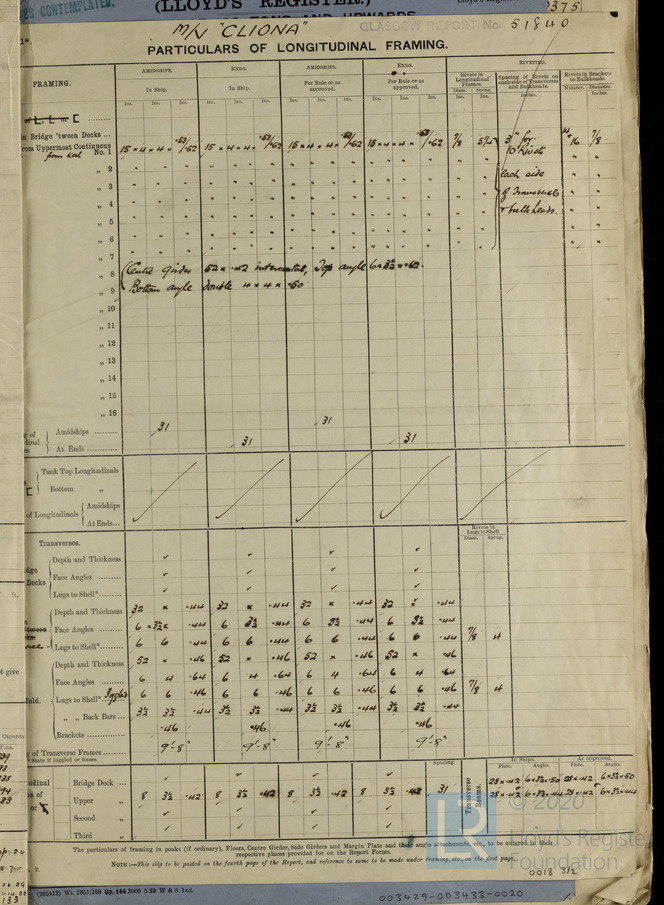 ES CONTEMPLATED.
(LLOYD'S REGISTER.)
Lloyd's Regi
375
TONS AND UPWARDS
M/V "CLIONA"
GLASGOW REPORT No. 51840
PARTICULARS OF LONGITUDINAL FRAMING.
FRAMING.
AMIDSHIPS. ENDS. AMIDSHIPS. ENDS. RIVETING.
In Ship. In Ship. Per Rule or as approved. Per Rule or as approved.
Rivets in Longitudinal Frames. Spacing of Rivets on each side of Transverses and Bulkheads. Rivets in Brackets to Bulkheads.
Diam. Spcng. Inches. Number. Diameter.
Ins. Ins. Ins. Ins. Ins. Ins. Ins. Ins. Ins. Ins. Ins. Ins. Ins. Ins. Inches.
n Bridge 'tween Decks ...
rom Uppermost Continuous
from keel No. 1 15 × 4 × 4 × .53/.62 15 × 4 × 4 × .53/.62 15 × 4 × 4 × .53/.62 15 × 4 × 4 × .53/.62 7/8 5 1/4 3" for 16 7/8
" 2 each side
" 3 of Transverses
" 4 & bulkheads.
" 5
" 6
" 7
" 8 Centre girder 52 × .42 intercostal, Top angle 6 × 3½ × .62.
" 9 Bottom angle double 4 × 4 × .50
" 10
" 11
" 12
" 13
" 14
" 15
" 16
g of
dinal
Amidships ......... 31 31
At Ends ............ 31 31
Tank Top Longitudinals
Bottom "
of Longitudinals Amidships
At Ends...
Rivets in Lugs to Shell
Diam. Spcng.
Transverses.
dge
Decks
Depth and Thickness
Face Angles .........
Lugs to Shell*......
Depth and Thickness 32 × .44 32 × .44 32 × .44 32 × .44
Face Angles ......... 6 × 3½ × .44 6 3½ .44 6 3½ .44 6 3½ .44
Lugs to Shell*...... 6 6 .44 6 6 .44 6 6 .44 6 6 .44 7/8 4
Depth and Thickness 52 × .46 52 × .46 52 × .46 52 × .46
Face Angles ......... 6 4 .64 6 4 .64 6 4 .64 6 4 .64
Hold. Lugs to Shell* Joggled 6 6 .46 6 6 .46 6 6 .46 6 6 .46 7/8 4
" " Back Bars ... 3½ 3½ .44 3½ 3½ .44 3½ 3½ .44 3½ 3½ .44
Brackets ............ .46 .46 .46 .46
g of Transverse Frames...... 9'-8" 9'-8" 9'-8" 9'-8"
* State if joggled or liners.
Spacing. In Ships. As approved.
Plate. Angles. Plate. Angles.
Transverse Beams.
Bridge Deck ... 28 × .42 6 × 3½ × .50 28 × .42 6 × 3½ × .50
Upper " 8 3½ .42 8 3½ .42 8 3½ .42 8 3½ .42 31 28 × .42 6 × 3½ × .44 28 × .42 6 × 3½ × .44
Second "
Third "
The particulars of framing in peaks (if ordinary), Floors, Centre Girder, Side Girders and Margin Plate and their angle attachments, etc., to be entered in their
respective places provided for on the Report Forms.
NOTE :—This slip to be posted on the fourth page of the Report, and reference to same to be made under framing, etc., on the first page.
(265412) Wt. 2855/169 Gp. 144 2000 5-29 W & S. Ltd.
0018 3/2
003429-003433-0020
© 2020
Lloyd's Register
Foundation